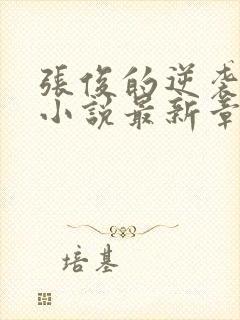 張俊的逆袭
小説最新章
培基